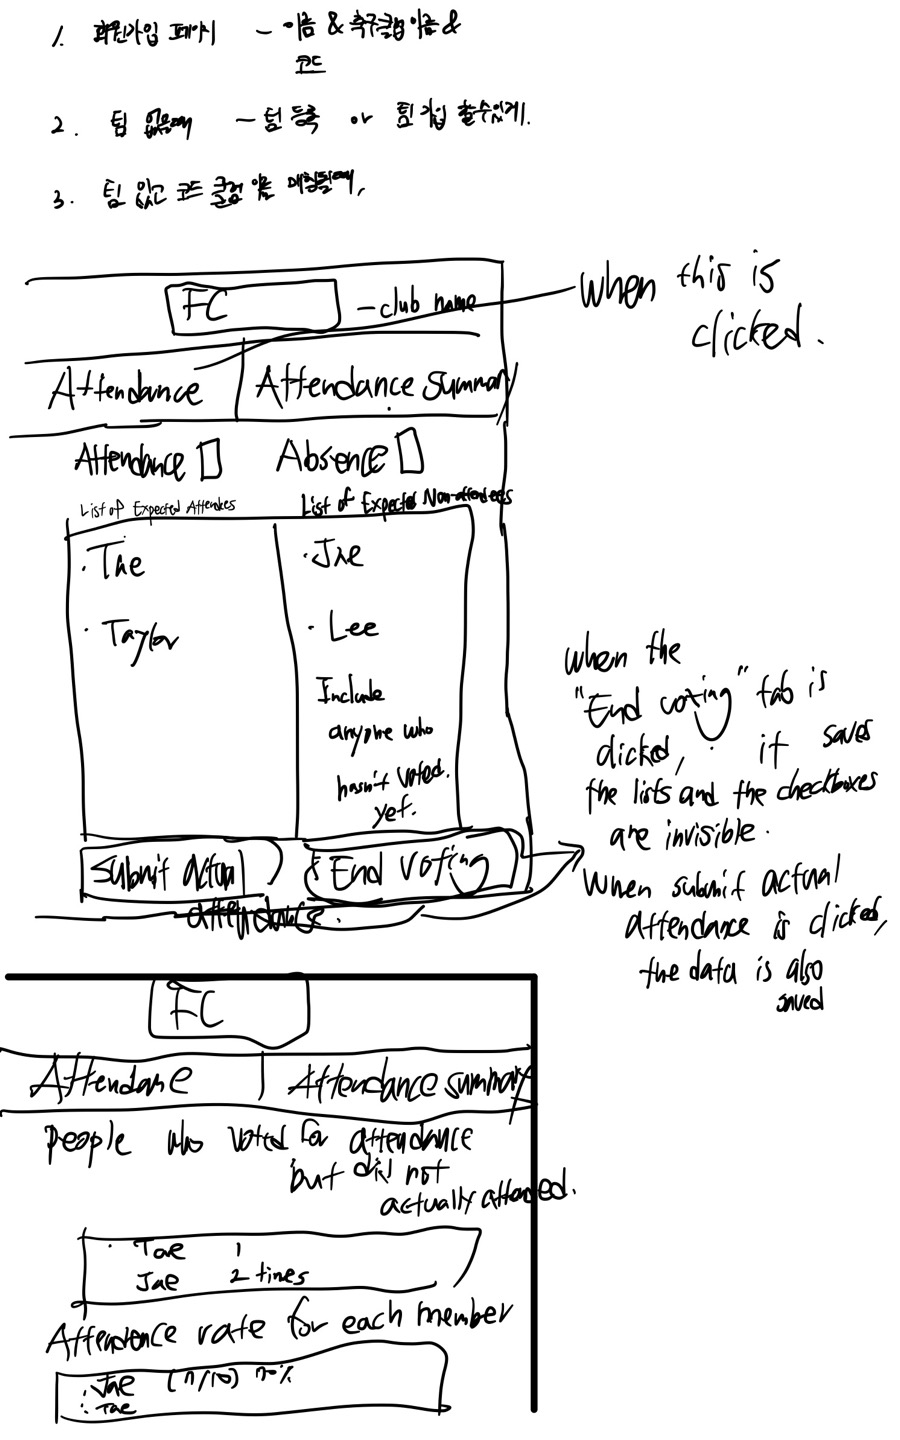 1. 회원가입 페이지 - 이름 & 축구클럽 이름 &
코드
2. 팀 없을때 - 팀 등록 or 팀 가입 할수있게.
3. 팀 있고 코드 클럽 이름 매칭될때,
FC - club name
when this is
clicked.
Attendance | Attendance summary
Attendance Absence
List of Expected Attendees List of Expected Non-attendees
· Tae · Jae
· Taylor · Lee
Include
anyone who
hasn't voted.
yet.
Submit actual & End voting
attendance.
when the
"End voting" tab is
clicked, it saves
the lists and the checkboxes
are invisible.
When submit actual
attendance is clicked,
the data is also
saved
FC
Attendane | Attendance summary
people who voted for attendance
but did not
actually attended.
· Tae 1
Jae 2 times
Attendence rate for each member
· Jae (7/10) 70%
· Tae